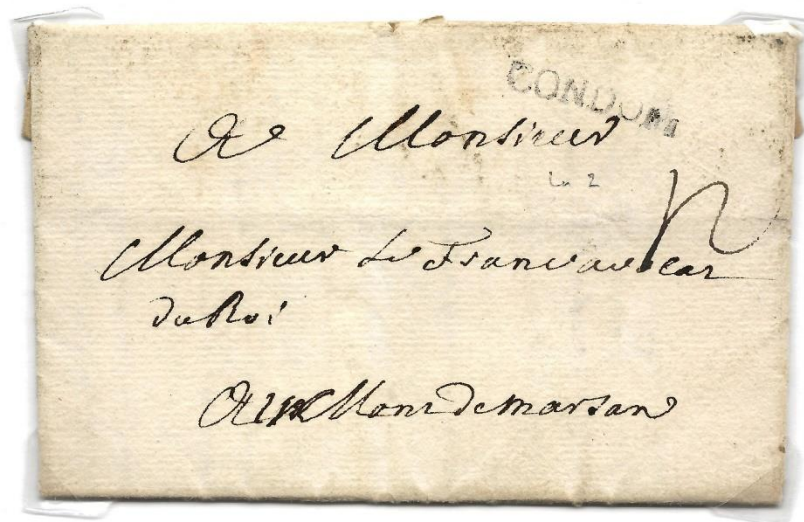 CONDOM
A Monsieur
Ln 2
Monsieur Le Franc avocat
du Roi
Au Mont de marsan